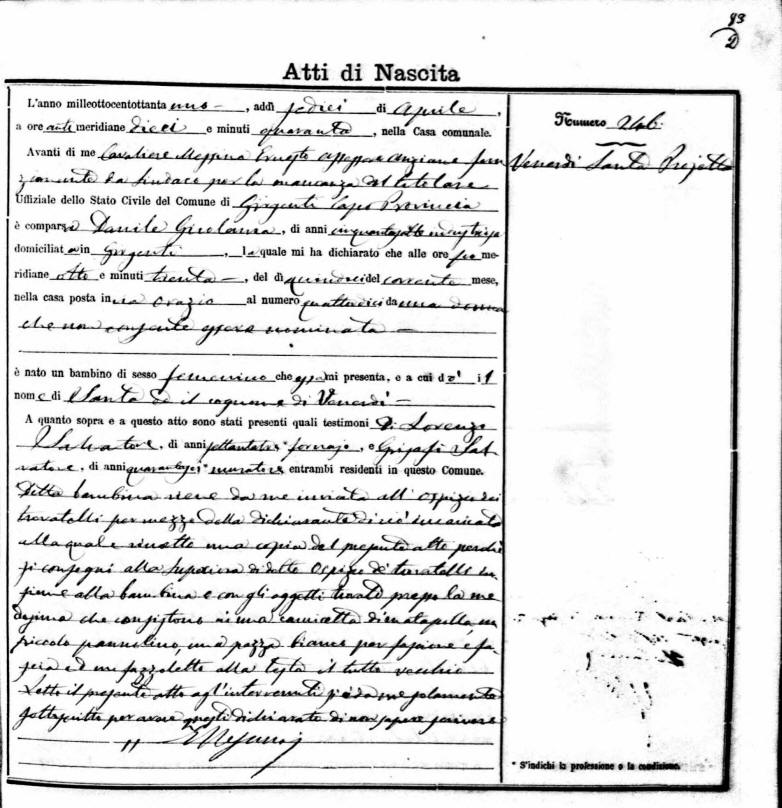 93
D
Atti di Nascita
L'anno milleottocentottanta uno, addì sedici di Aprile,
a ore anti meridiane dieci e minuti quaranta, nella Casa comunale.
Avanti di me Cavaliere Messina Ernesto assessore anziano fun
zionante da Sindaco per la mancanza del titolare
Uffiziale dello Stato Civile del Comune di Girgenti Capo Provincia
è comparsa Danile Girolama, di anni cinquantasette
domiciliata in Girgenti, la quale mi ha dichiarato che alle ore po me-
ridiane otto e minuti trenta, del dì quindici del corrente mese,
nella casa posta in via Orazio al numero quattordici da una donna
che non consente essere nominata
è nato un bambino di sesso femenino che essa mi presenta, e a cui dò i l
nome di Santa ed il cognome di Venerdì
A quanto sopra e a questo atto sono stati presenti quali testimoni Di Lorenzo
Salvatore, di anni settantatre fornajo, e Grisafi Sal
vatore, di anni quarantasei muratore entrambi residenti in questo Comune.
Detta bambina viene da me inviata all'Ospizio dei
trovatelli per mezzo della dichiarante di ciò incaricata
alla quale rimetto una copia del presente atto perchè
si consegni alla Superiora di detto Ospizio de' trovatelli in
sieme alla bambina e con gli oggetti trovati presso la me
desima che consistono in una camicetta di matapollo, un
piccolo pannolino, una pezza bianca per fascione e fa
scia ed un fazzoletto alla testa il tutto vecchio
Letto il presente atto agl'intervenuti si è da me solamente
sottoscritto per avere questi dichiarato di non sapere scrivere
E Messina
Numero 246.
Venerdì Santa Projetta
* S'indichi la professione o la condizione.